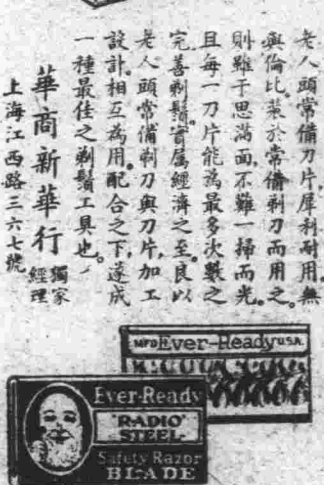 老人頭常備刀片，犀利耐用，無
與倫比。裝於常備剃刀而用之。
則雖于思滿面，不難一掃而光。
且每一刀片能爲最多次數之
完善剃鬚，實屬經濟之至。良以
老人頭常備剃刀與刀片，加工
設計，相互爲用。配合之下，遂成
一種最佳之剃鬚工具也。
華商新華行 獨家經理
上海江西路三六七號
MFD Ever-Ready U.S.A.
Ever-Ready
"RADIO"
STEEL
Safety Razor
BLADE